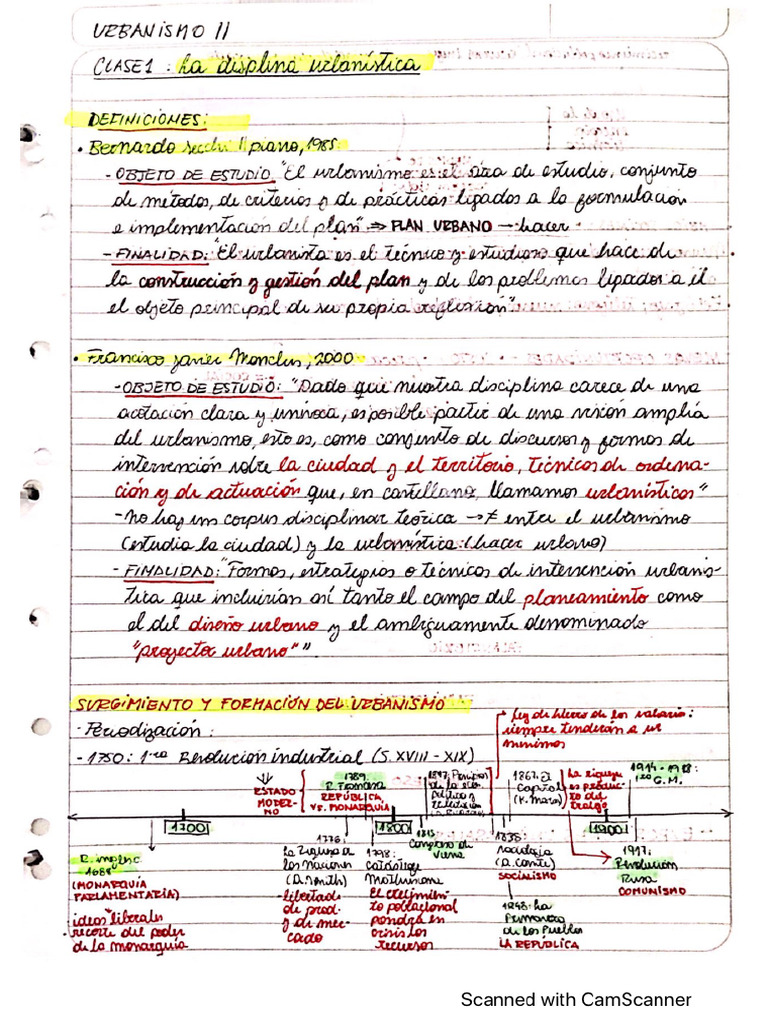 URBANISMO II
CLASE 1: La displina urbanística
DEFINICIONES:
• Bernardo Secchi Il piano, 1985:
- OBJETO DE ESTUDIO: "El urbanismo es el área de estudio, conjunto
de métodos, de criterios y de prácticas ligados a la formulación
e implementación del plan" => PLAN URBANO → hacer
- FINALIDAD: "El urbanista es el técnico y estudioso que hace de
la construcción y gestión del plan y de los problemas ligados a él
el objeto principal de su propia reflexión"
• Francisco Javier Monclus, 2000
- OBJETO DE ESTUDIO: "Dado que nuestra disciplina carece de una
acotación clara y unívoca, es posible partir de una visión amplia
del urbanismo, esto es, como conjunto de discursos y formas de
intervención sobre la ciudad y el territorio, técnicas de ordena-
ción y de actuación que, en castellano, llamamos urbanísticas"
- No hay un corpus disciplinar teórico → ≠ enter el urbanismo
(estudia la ciudad) y la urbanística: (hacer urbano)
- FINALIDAD: "Formas, estrategias o técnicas de intervención urbanís-
tica que incluirían así tanto el campo del planeamiento como
el del diseño urbano y el ambiguamente denominado
"proyecto urbano""
SURGIMIENTO Y FORMACIÓN DEL URBANISMO
- Periodización:
- 1750: 1ra Revolución industrial (S. XVIII - XIX)
Ley de hierro de los salarios:
siempre tenderán a ser
mínimos
ESTADO
MODER-
NO
1789:
R. Francesa
REPÚBLICA
VS. MONARQUÍA
1817: Principios
de la eco.
política y
tributación
1867: El
Capital
(K. Marx)
La riqueza
es produc-
to del
trabajo
1914 - 1918:
1ra G.M.
1700
1800
1900
R. inglesa
1688
(MONARQUÍA
PARLAMENTARIA)
ideas liberales
recorte del poder
de la monarquía
1776:
La Riqueza de
las Naciones
(A. Smith)
- libertad
de prod.
y de mer-
cado
1798:
Catástrofe
Malthusiana
El crecimien-
to poblacional
pondrá en
crisis los
recursos
1815
Congreso de
Viena
1838
Sociología
(A. Comte)
SOCIALISMO
1848: La
Primavera
de los Pueblos
LA REPÚBLICA
1917:
Revolución
Rusa
COMUNISMO
Scanned with CamScanner